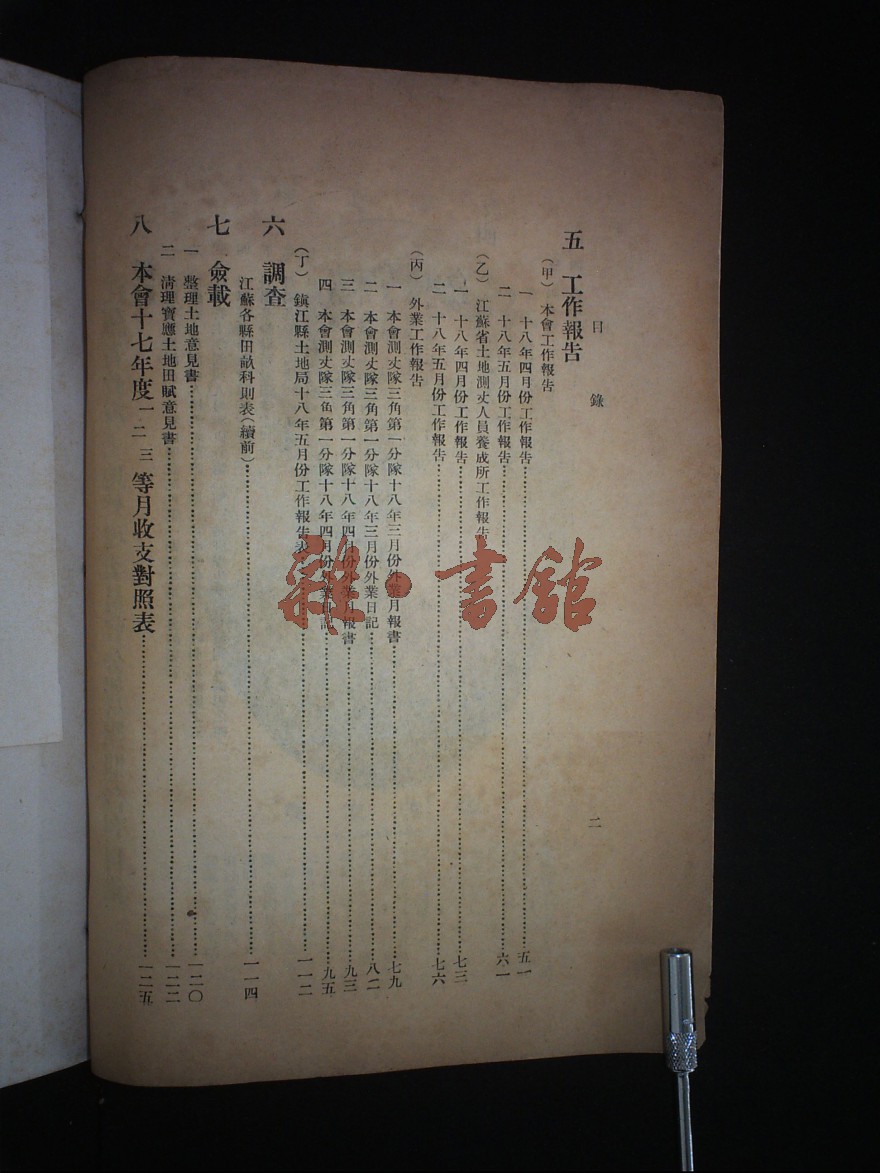 目錄
二
五 工作報告
(甲) 本會工作報告
一 十八年四月份工作報告……五一
二 十八年五月份工作報告……六一
(乙) 江蘇省土地測丈人員養成所工作報告
一 十八年四月份工作報告……七三
二 十八年五月份工作報告……七六
(丙) 外業工作報告
一 本會測丈隊三角第一分隊十八年三月份外業月報書……七九
二 本會測丈隊三角第一分隊十八年三月份外業日記……八二
三 本會測丈隊三角第一分隊十八年四月份外業月報書……九三
四 本會測丈隊三角第一分隊十八年四月份外業日記……九五
(丁) 鎮江縣土地局十八年五月份工作報告表……一一二
六 調查
江蘇各縣田畝科則表(續前)……一一四
七 僉載
一 整理土地意見書……一二〇
二 清理寶應土地田賦意見書……一二二
八 本會十七年度一二三等月收支對照表……一二五
雜·書館